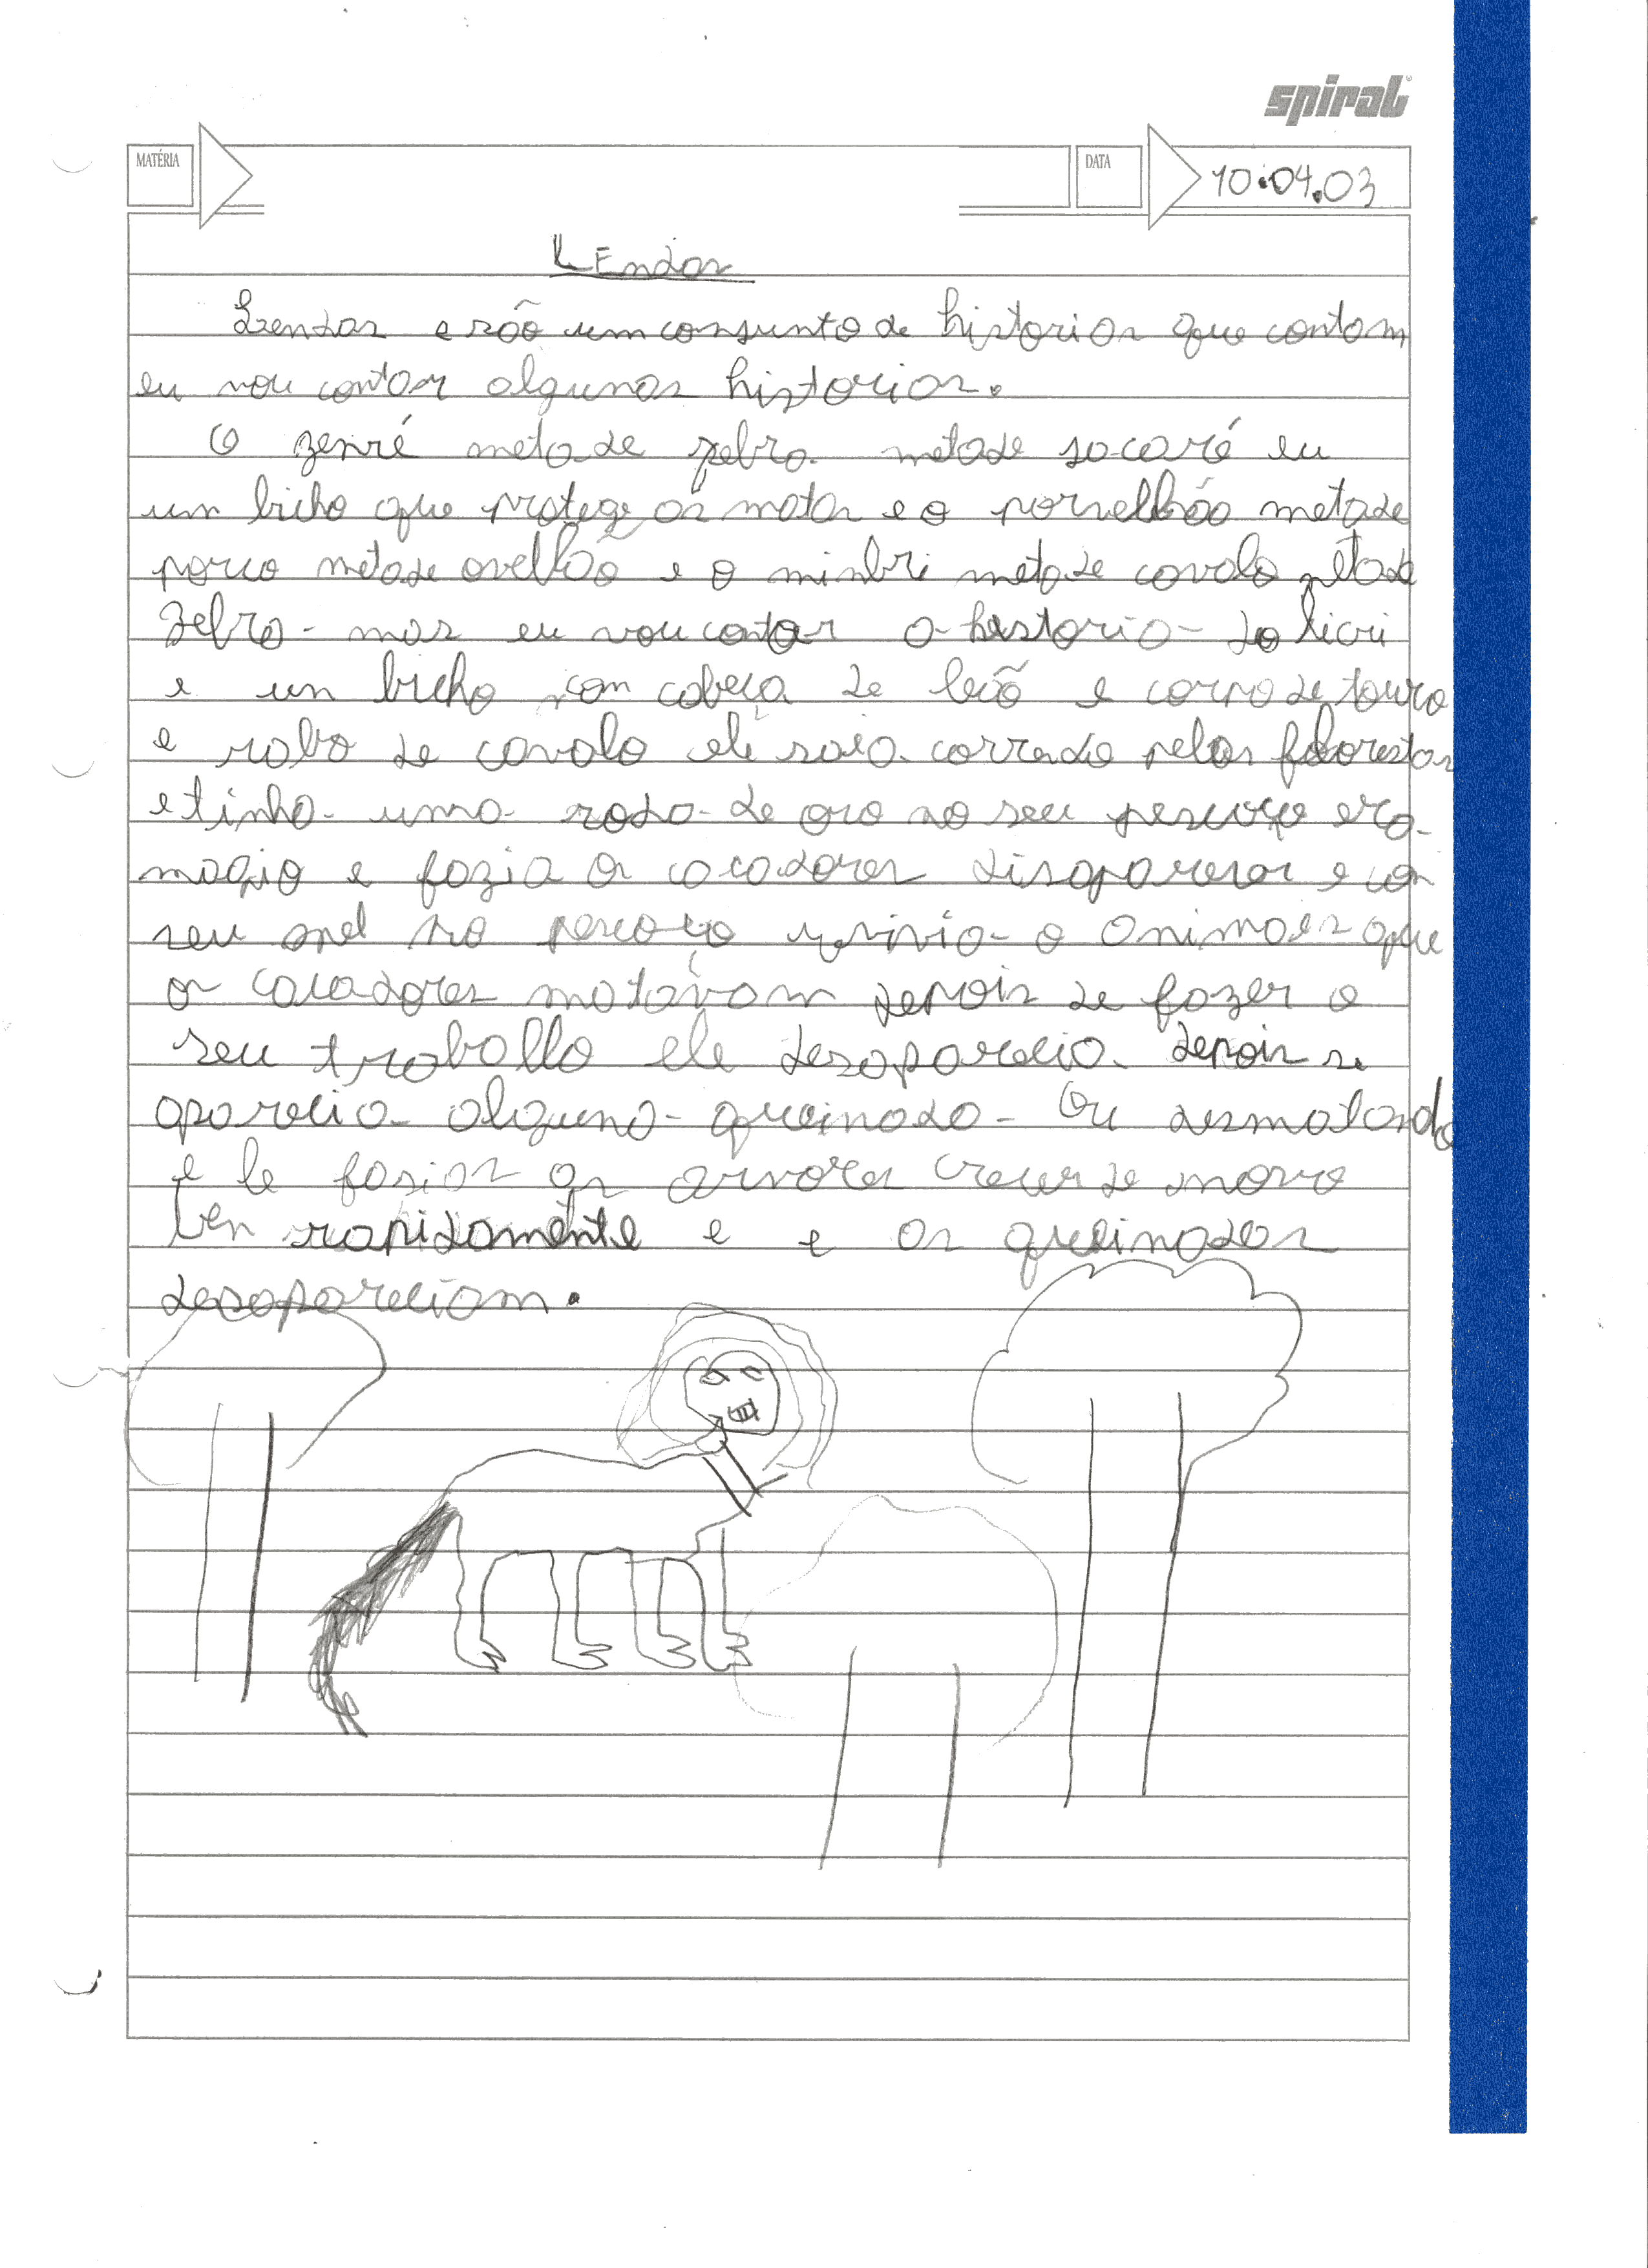 spiral
MATÉRIA
DATA
10.04.03
LEndas
Lendas e são um consunto de historias que contam
eu vou contar algumas historias.
O zenré metade zebra metade jacaré eu
um bicho que protege as matas e o porvelhão metade
porco metade ovelhão e o minbri metade cavalo metade
Zebra mas eu vou contar a historia do licri
e un bicho com cabeça de leão e corpo de touro
e rabo de cavalo ele saia corrado pelas florestas
e tinha uma roda de oro no seu pescoço era
magio e fazia os cacadores disapareser e con
seu anel no pescoço revivia o animaes que
os cacadores matavam depois de fazer o
seu traballo ele desaparecia depois se
aparecia alguma queimada ou desmatando
e le fasias as arvores crecer de novo
ben rapidamente e e as queimadas
desapareciam.